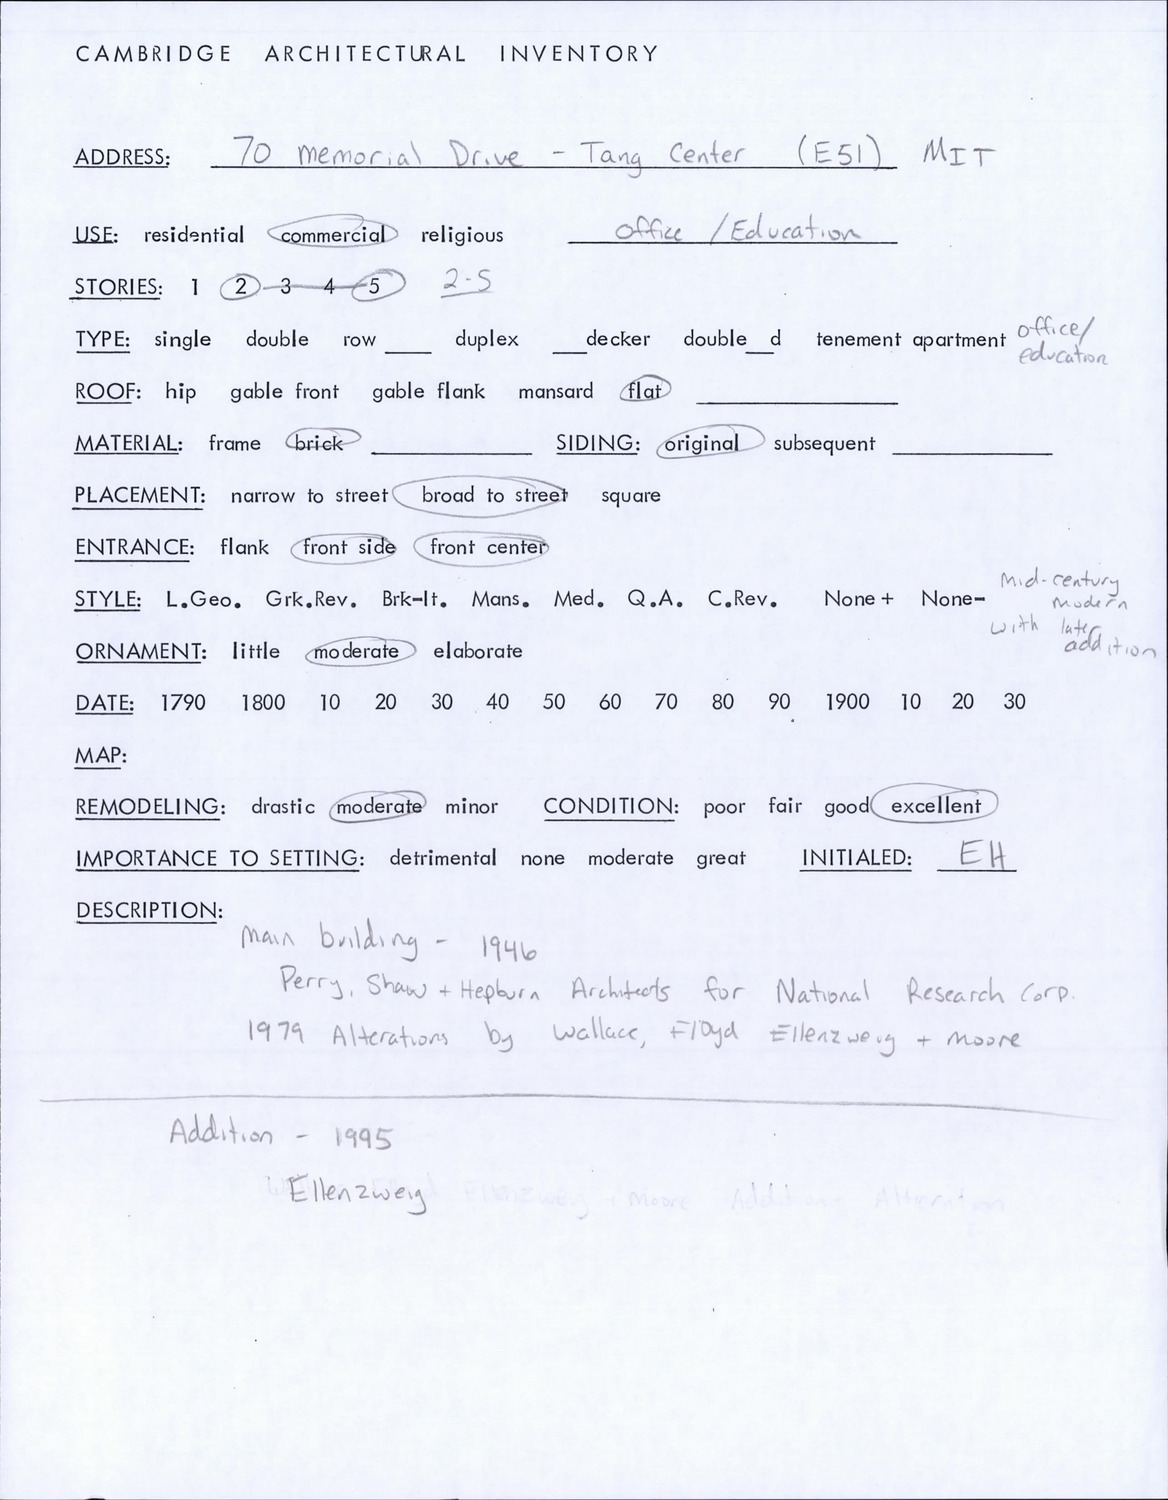 CAMBRIDGE ARCHITECTURAL INVENTORY
ADDRESS: 70 Memorial Drive - Tang Center (E51) MIT
USE: residential commercial religious Office / Education
STORIES: 1 2 3 4 5 2-5
TYPE: single double row ___ duplex ___decker double__d tenement apartment office/
education
ROOF: hip gable front gable flank mansard flat
MATERIAL: frame brick SIDING: original subsequent
PLACEMENT: narrow to street broad to street square
ENTRANCE: flank front side front center
STYLE: L.Geo. Grk.Rev. Brk-It. Mans. Med. Q.A. C.Rev. None+ None- Mid-century
Modern
with later
addition
ORNAMENT: little moderate elaborate
DATE: 1790 1800 10 20 30 40 50 60 70 80 90 1900 10 20 30
MAP:
REMODELING: drastic moderate minor CONDITION: poor fair good excellent
IMPORTANCE TO SETTING: detrimental none moderate great INITIALED: EH
DESCRIPTION:
Main building - 1946
Perry, Shaw + Hepburn Architects for National Research Corp.
1979 Alterations by Wallace, Floyd Ellenzweig + Moore
Addition - 1995
Ellenzweig